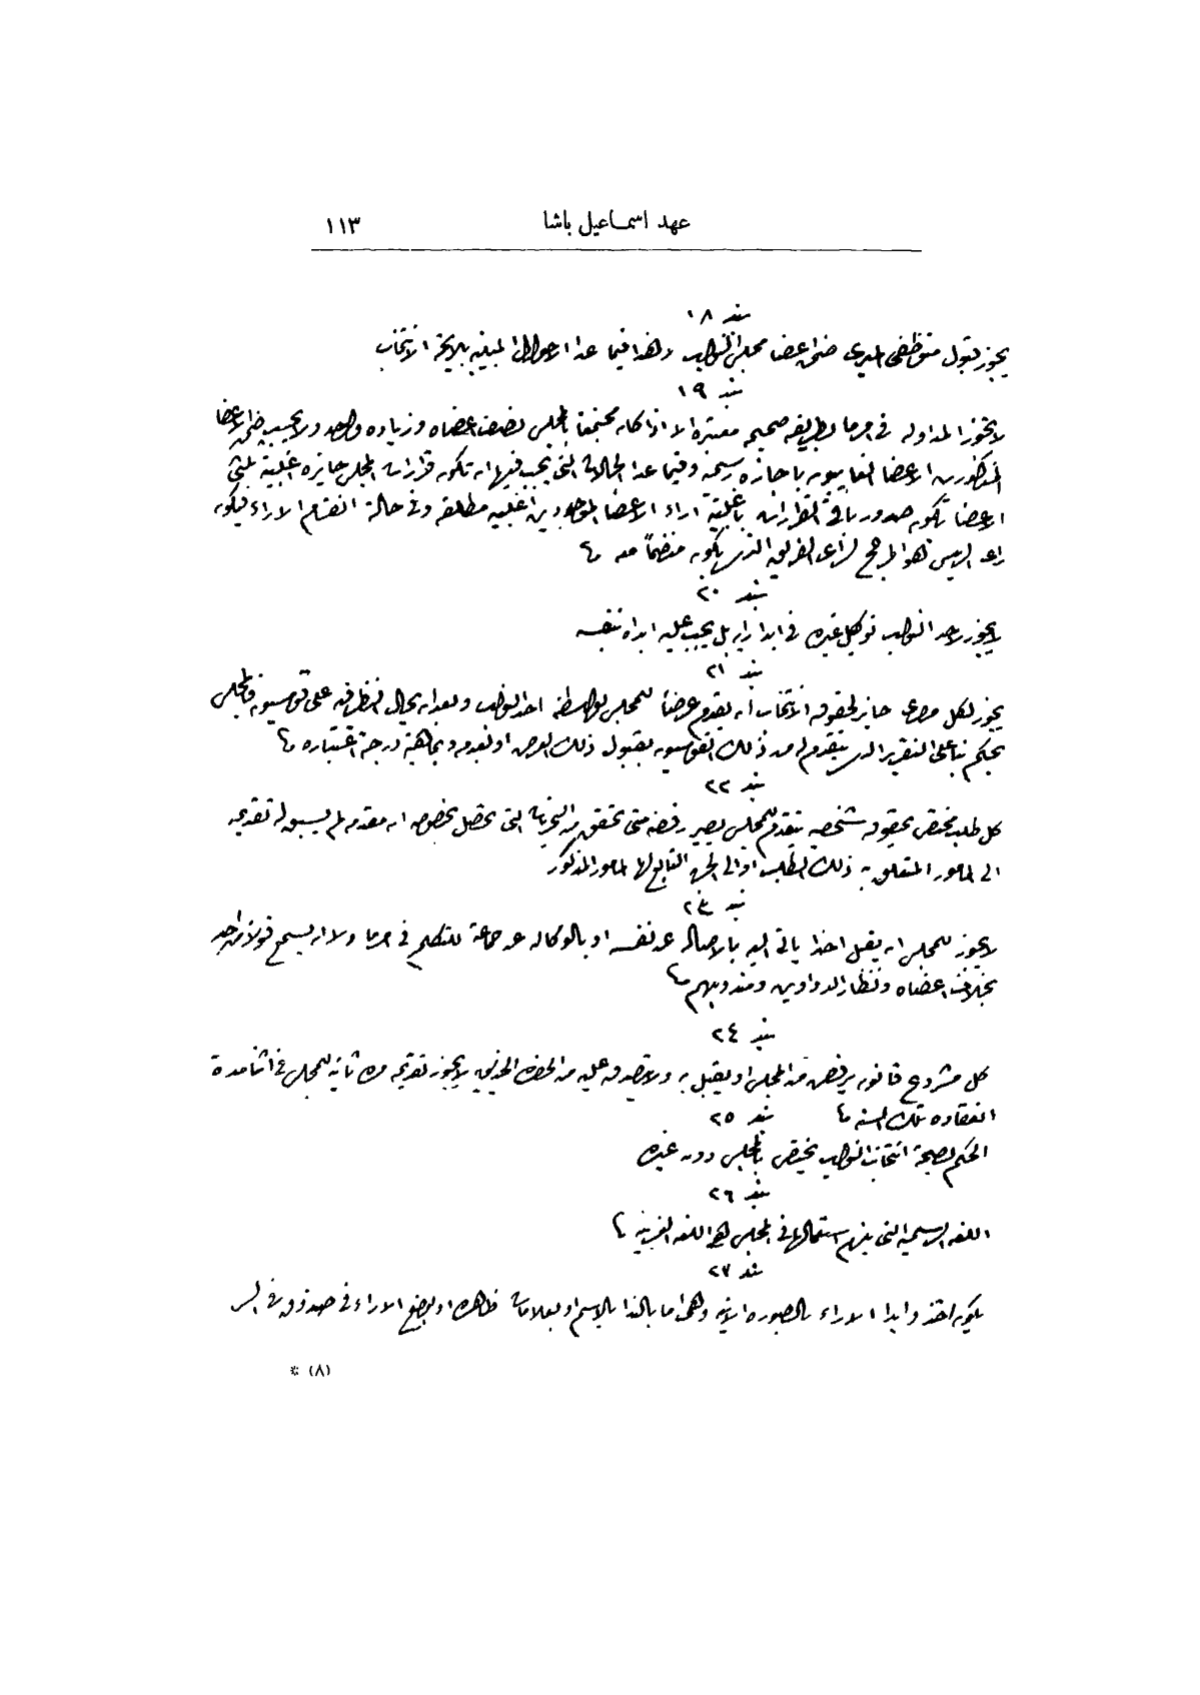 عهد اسماعيل باشا ١١٣
بند ١٨
يجوز قبول متوظفى الميرى ضمن اعضا مجلس النواب وهذا فيما عدا الاحوال المبينه بلايحة الانتخاب
بند ١٩
لا تجوز المداوله فى امر ما بطريقه صحيحه معتبره الا اذا كان مجتمعا بالمجلس نصف اعضاه وزياده واحد ولا يحسب ضمن الاعضا
المذكورين الاعضا الغايبون باجازه رسميه وفيما عدا الحالات التى يجب فيها ان تكون قرارات المجلس حايزه اغلبية ثلثى
الاعضا تكون صدور باقى القرارات باغلبية اراء الاعضا الموجودين اغلبيه مطلقه وفى حالة انقسام الاراء فيكون
راى الريس هو المرجح لراى الفريق الذى يكون منضماً معه
بند ٢٠
لا يجوز لاحد النواب توكيل غيره فى ابدا رايه بل يجب عليه ابداه بنفسه
بند ٢١
يجوز لكل مصرى حايز لحقوق الانتخاب أن يقدم عرضاً للمجلس بواسطة احد النواب وبعد ان يحال النظر فيه على قومسيون فالمجلس
يحكم بناء على التقرير الذى يتقدم له من ذلك القومسيون بقبول ذلك العرض او بعدمه وبماهية درجة اعتباره
بند ٢٢
كل طلب مختص بحقوق شخصيه يتقدم للمجلس يصير رفضه متى تحقق من التحريات التى تحصل بخصوصه انه مقدمه لم يسبق له تقديمه
الى المامور المتعلق به ذلك الطلب او الى الجهه التابع لها المامور المذكور
بند ٢٣
لا يجوز للمجلس ان يقبل احدا ياتى اليه بالاصاله عن نفسه او بالوكاله عن جماعة للتكلم فى امر ما ولا ان يسمع قولا من احد
بخلاف اعضاه ونظار الدواوين ومندوبيهم
بند ٢٤
كل مشروع قانون يرفض من المجلس او يقبل به ولا يتصدق عليه من الحضره الخديويه لا يجوز تقديمه مره ثانيه للمجلس فى اثنا مدة
انعقاده تلك السنه بند ٢٥
الحكم بصحة انتخاب النواب يختص بالمجلس دون غيره
بند ٢٦
اللغه الرسميه التى يلزم استعمالها فى المجلس هى اللغه العربيه
بند ٢٧
يكون اخذ وابدا الاراء بالصوره الاتيه وهى اما بالندا بالاسم او بعلامات ظاهره او بوضع الاراء فى صندوق فى السر
(٨) *